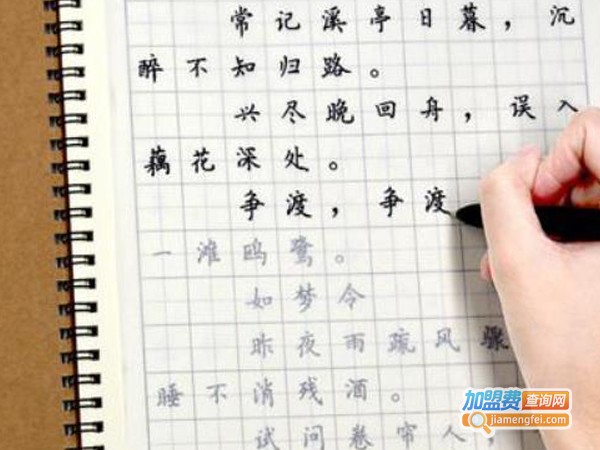 常记溪亭日暮，沉
醉不知归路。
兴尽晚回舟，误入
藕花深处。
争渡，争渡
一滩鸥鹭。
如梦令
昨夜雨疏风骤
睡不消残酒。
试问卷帘人，
加盟费查询网
jiamengfei.com